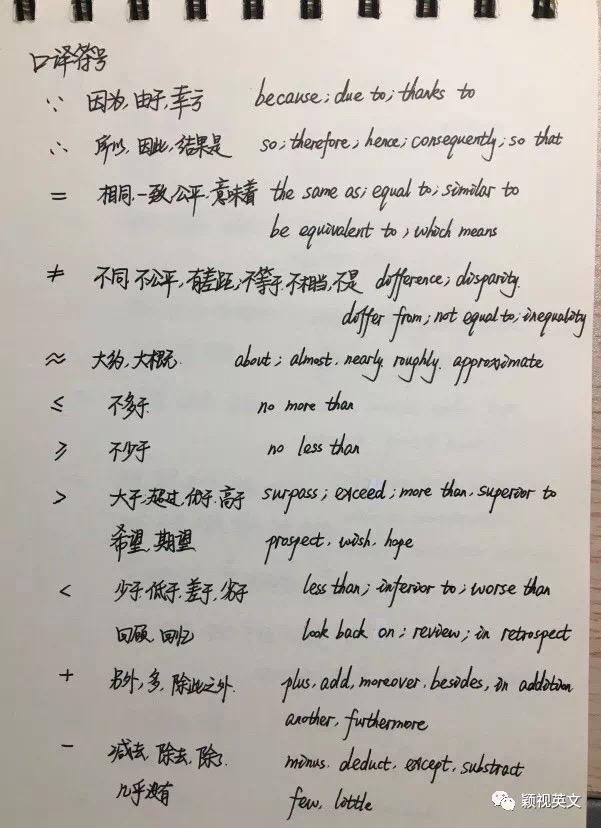 口译符号
∵ 因为,由于,幸亏 because; due to; thanks to
∴ 所以,因此,结果是 so; therefore; hence; consequently; so that
= 相同,一致,公平,意味着 the same as; equal to; similar to
be equivalent to; which means
≠ 不同,不公平,有差距,不等于,不相当,不是 difference; disparity.
differ from; not equal to; inequality
≈ 大约,大概 about; almost, nearly, roughly, approximate
≤ 不多于 no more than
≥ 不少于 no less than
> 大于,超过,优于,高于 surpass; exceed; more than, superior to
希望,期望 prospect, wish, hope
< 少于,低于,差于,劣于 less than; inferior to; worse than
回顾,回忆 look back on; review; in retrospect
+ 另外,多,除此之外 plus, add, moreover, besides, in addition
another, furthermore
- 减去,除去,除了 minus, deduct, except, substract
几乎没有 few, little
颖视英文